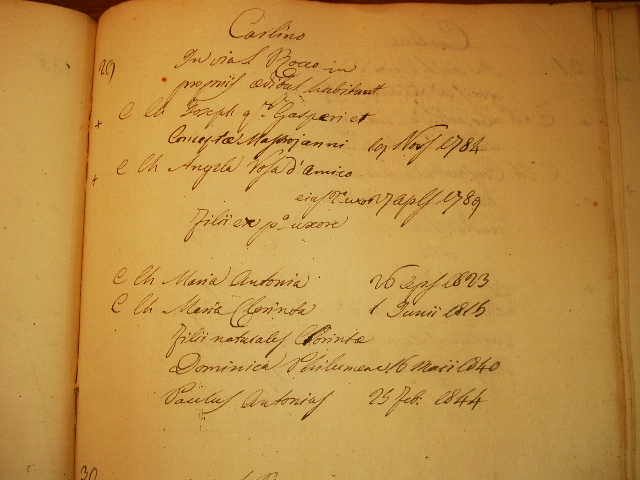 Carlino
29
In via S. Rocco in
propriis ædibus habitant
+ C Ch Joseph q.m Gasperi et
Conceptæ Mastrojanni 19 Novs 1784
+ C Ch Angela Rosa d'Amico
eius 2.a uxor 27 aples 1789
Filii ex p.a uxore
C Ch Maria Antonia 26 1823
C Ch Maria Clorinda 1 Junii 1816
Filii naturales Clorintæ
Dominica Philumena 16 Maii 1840
Paulus Antonius 25 Feb. 1844
30